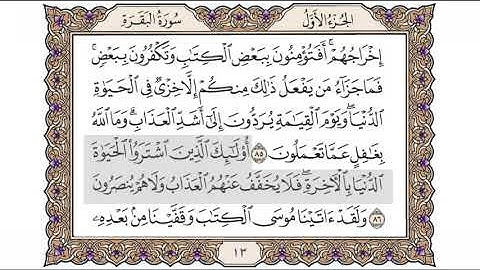 الجزء الأول
سورة البقرة
إِخْرَاجُهُمْ ۚ أَفَتُؤْمِنُونَ بِبَعْضِ الْكِتَابِ وَتَكْفُرُونَ بِبَعْضٍ ۚ
فَمَا جَزَاءُ مَن يَفْعَلُ ذَٰلِكَ مِنكُمْ إِلَّا خِزْيٌ فِي الْحَيَاةِ
الدُّنْيَا ۖ وَيَوْمَ الْقِيَامَةِ يُرَدُّونَ إِلَىٰ أَشَدِّ الْعَذَابِ ۗ وَمَا اللَّهُ
بِغَافِلٍ عَمَّا تَعْمَلُونَ ٨٥ أُولَٰئِكَ الَّذِينَ اشْتَرَوُا الْحَيَاةَ
الدُّنْيَا بِالْآخِرَةِ ۖ فَلَا يُخَفَّفُ عَنْهُمُ الْعَذَابُ وَلَا هُمْ يُنصَرُونَ
٨٦ وَلَقَدْ آتَيْنَا مُوسَى الْكِتَابَ وَقَفَّيْنَا مِن بَعْدِهِ
١٣